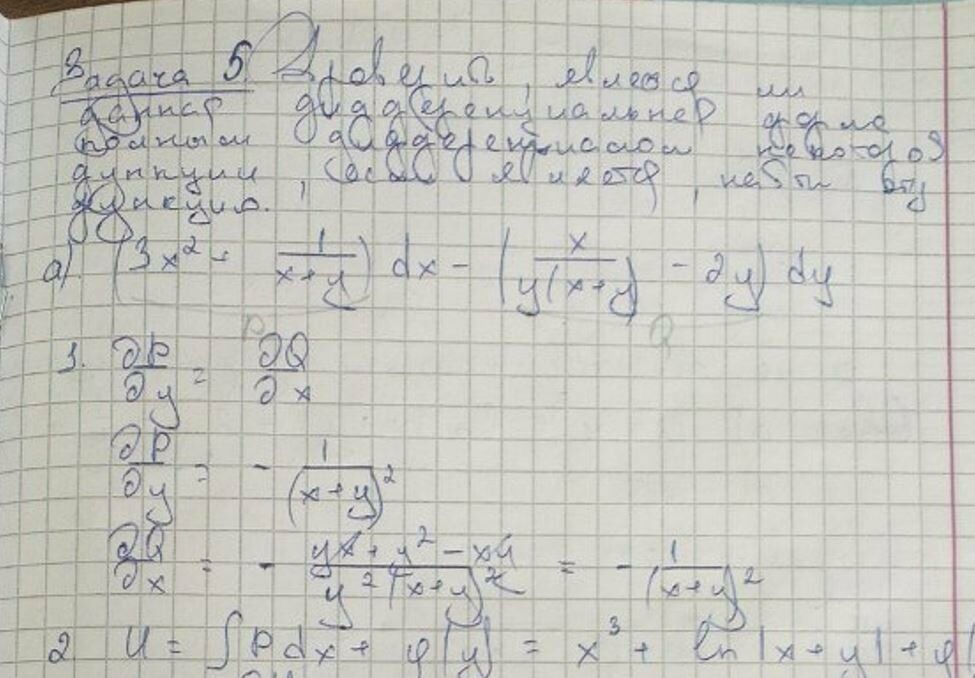 Задача 5 Проверить, является ли
данная дифференциальная форма
полным дифференциалом некоторой
функции, если является, найти эту
функцию.
а) (3x² + 1/(x+y)) dx - (x/(y(x+y)) - 2y) dy
P Q
1. ∂P/∂y = ∂Q/∂x
∂P/∂y = - 1/(x+y)²
∂Q/∂x = - (yx + y² - xy)/(y²(x+y)²) = - 1/(x+y)²
2 U = ∫ P dx + φ(y) = x³ + ln|x+y| + φ(